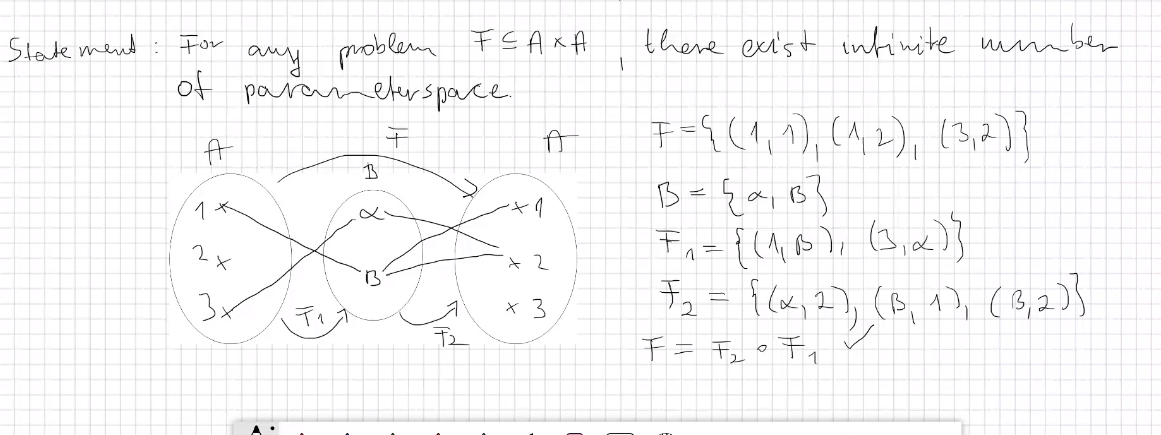 Statement: For any problem F ⊆ A × A, there exist infinite number
of parameterspace.
A F A
B
1 α 1
2 B 2
3 3
F₁ F₂
F = {(1,1), (1,2), (3,2)}
B = {α, B}
F₁ = {(1,B), (3,α)}
F₂ = {(α,2), (B,1), (B,2)}
F = F₂ ∘ F₁ ✓